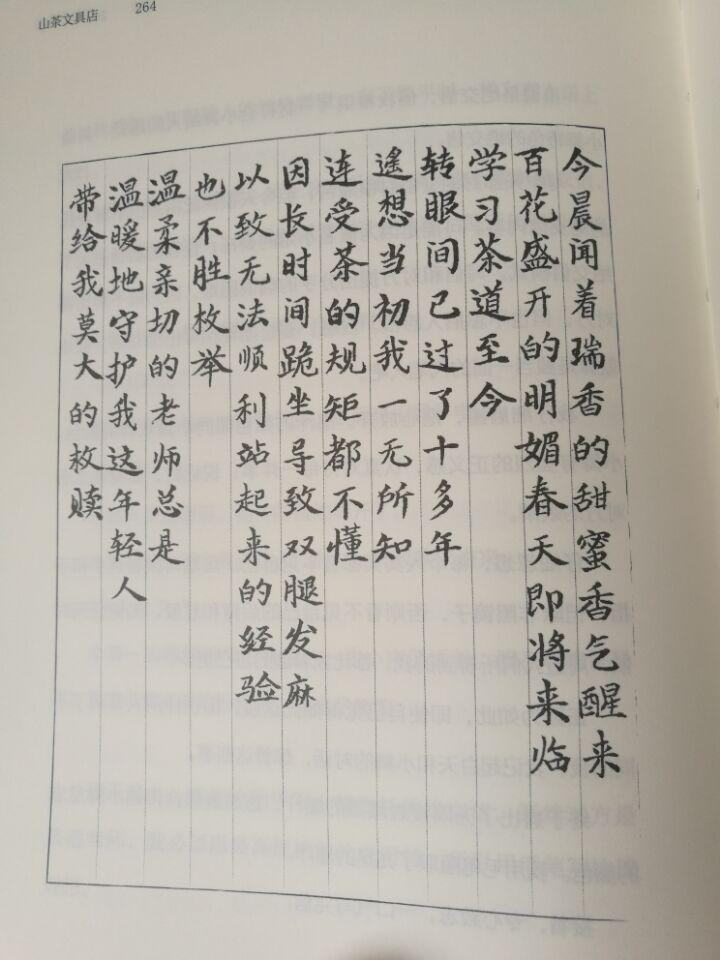 山茶文具店 264
今晨闻着瑞香的甜蜜香气醒来
百花盛开的明媚春天即将来临
学习茶道至今
转眼间已过了十多年
遥想当初我一无所知
连受茶的规矩都不懂
因长时间跪坐导致双腿发麻
以致无法顺利站起来的经验
也不胜枚举
温柔亲切的老师总是
温暖地守护我这年轻人
带给我莫大的救赎